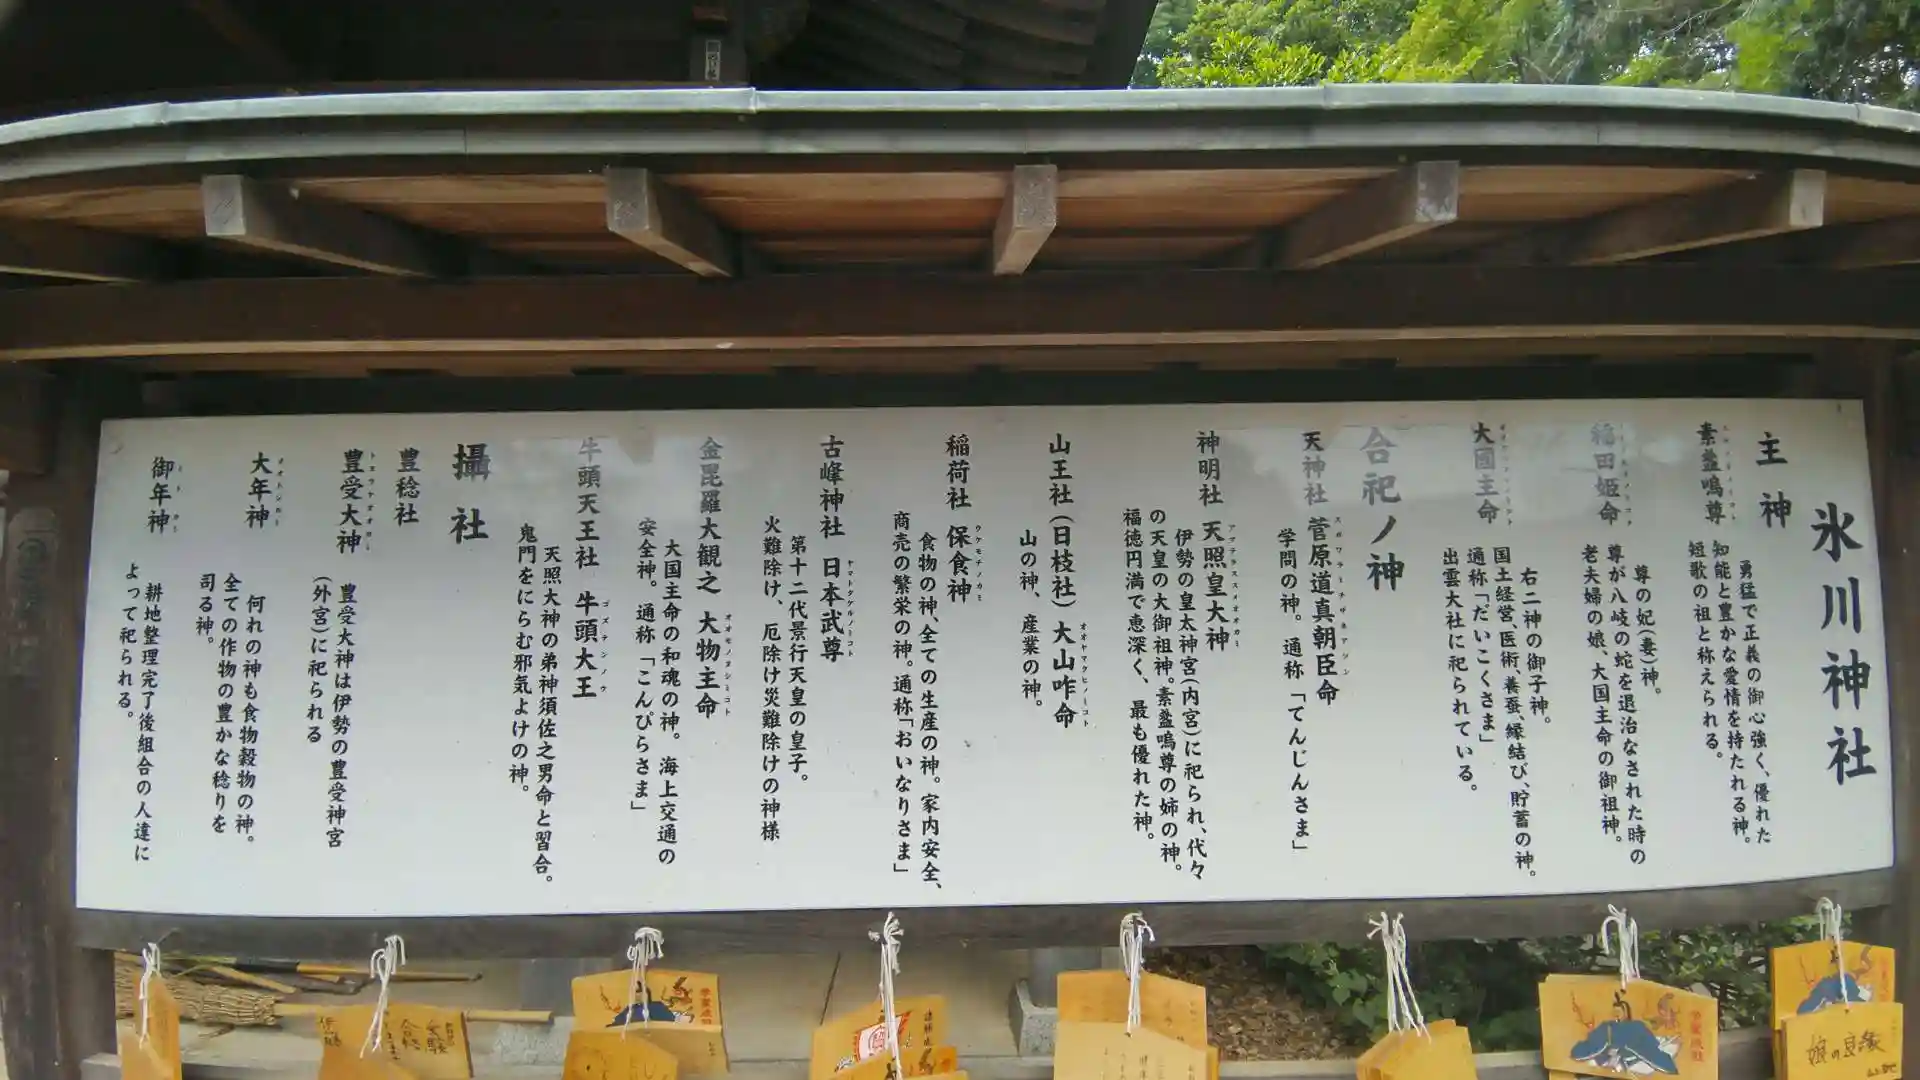 氷川神社
主神
素盞嗚尊
勇猛で正義の御心強く、優れた
知能と豊かな愛情を持たれる神。
短歌の祖と称えられる。
稲田姫命
尊の妃(妻)神。
尊が八岐の蛇を退治なされた時の
老夫婦の娘、大国主命の御祖神。
大國主命
右二神の御子神。
国土経営、医術、養蚕、縁結び、貯蓄の神。
通称「だいこくさま」
出雲大社に祀られている。
合祀ノ神
天神社 菅原道真朝臣命
スガワラミチザネアソン
学問の神。通称「てんじんさま」
神明社 天照皇大神
アマテラススメオオカミ
伊勢の皇太神宮(内宮)に祀られ、代々
の天皇の大御祖神。素盞嗚尊の姉の神。
福徳円満で恵深く、最も優れた神。
山王社(日枝社)大山咋命
オオヤマクヒノミコト
山の神、産業の神。
稲荷社 保食神
ウケモチノカミ
食物の神、全ての生産の神。家内安全、
商売の繁栄の神。通称「おいなりさま」
古峰神社 日本武尊
ヤマトタケルノミコト
第十二代景行天皇の皇子。
火難除け、厄除け災難除けの神様
金毘羅大観之 大物主命
オオモノヌシミコト
大国主命の和魂の神。海上交通の
安全神。通称「こんぴらさま」
牛頭天王社 牛頭大王
ゴズテンノウ
天照大神の弟神須佐之男命と習合。
鬼門をにらむ邪気よけの神。
攝社
豊稔社
豊受大神
トヨウケオオカミ
豊受大神は伊勢の豊受神宮
(外宮)に祀られる
大年神
オオトシガミ
何れの神も食物穀物の神。
全ての作物の豊かな稔りを
司る神。
御年神
ミトシガミ
耕地整理完了後組合の人達に
よって祀られる。
学業成就
学業成就
娘の良縁